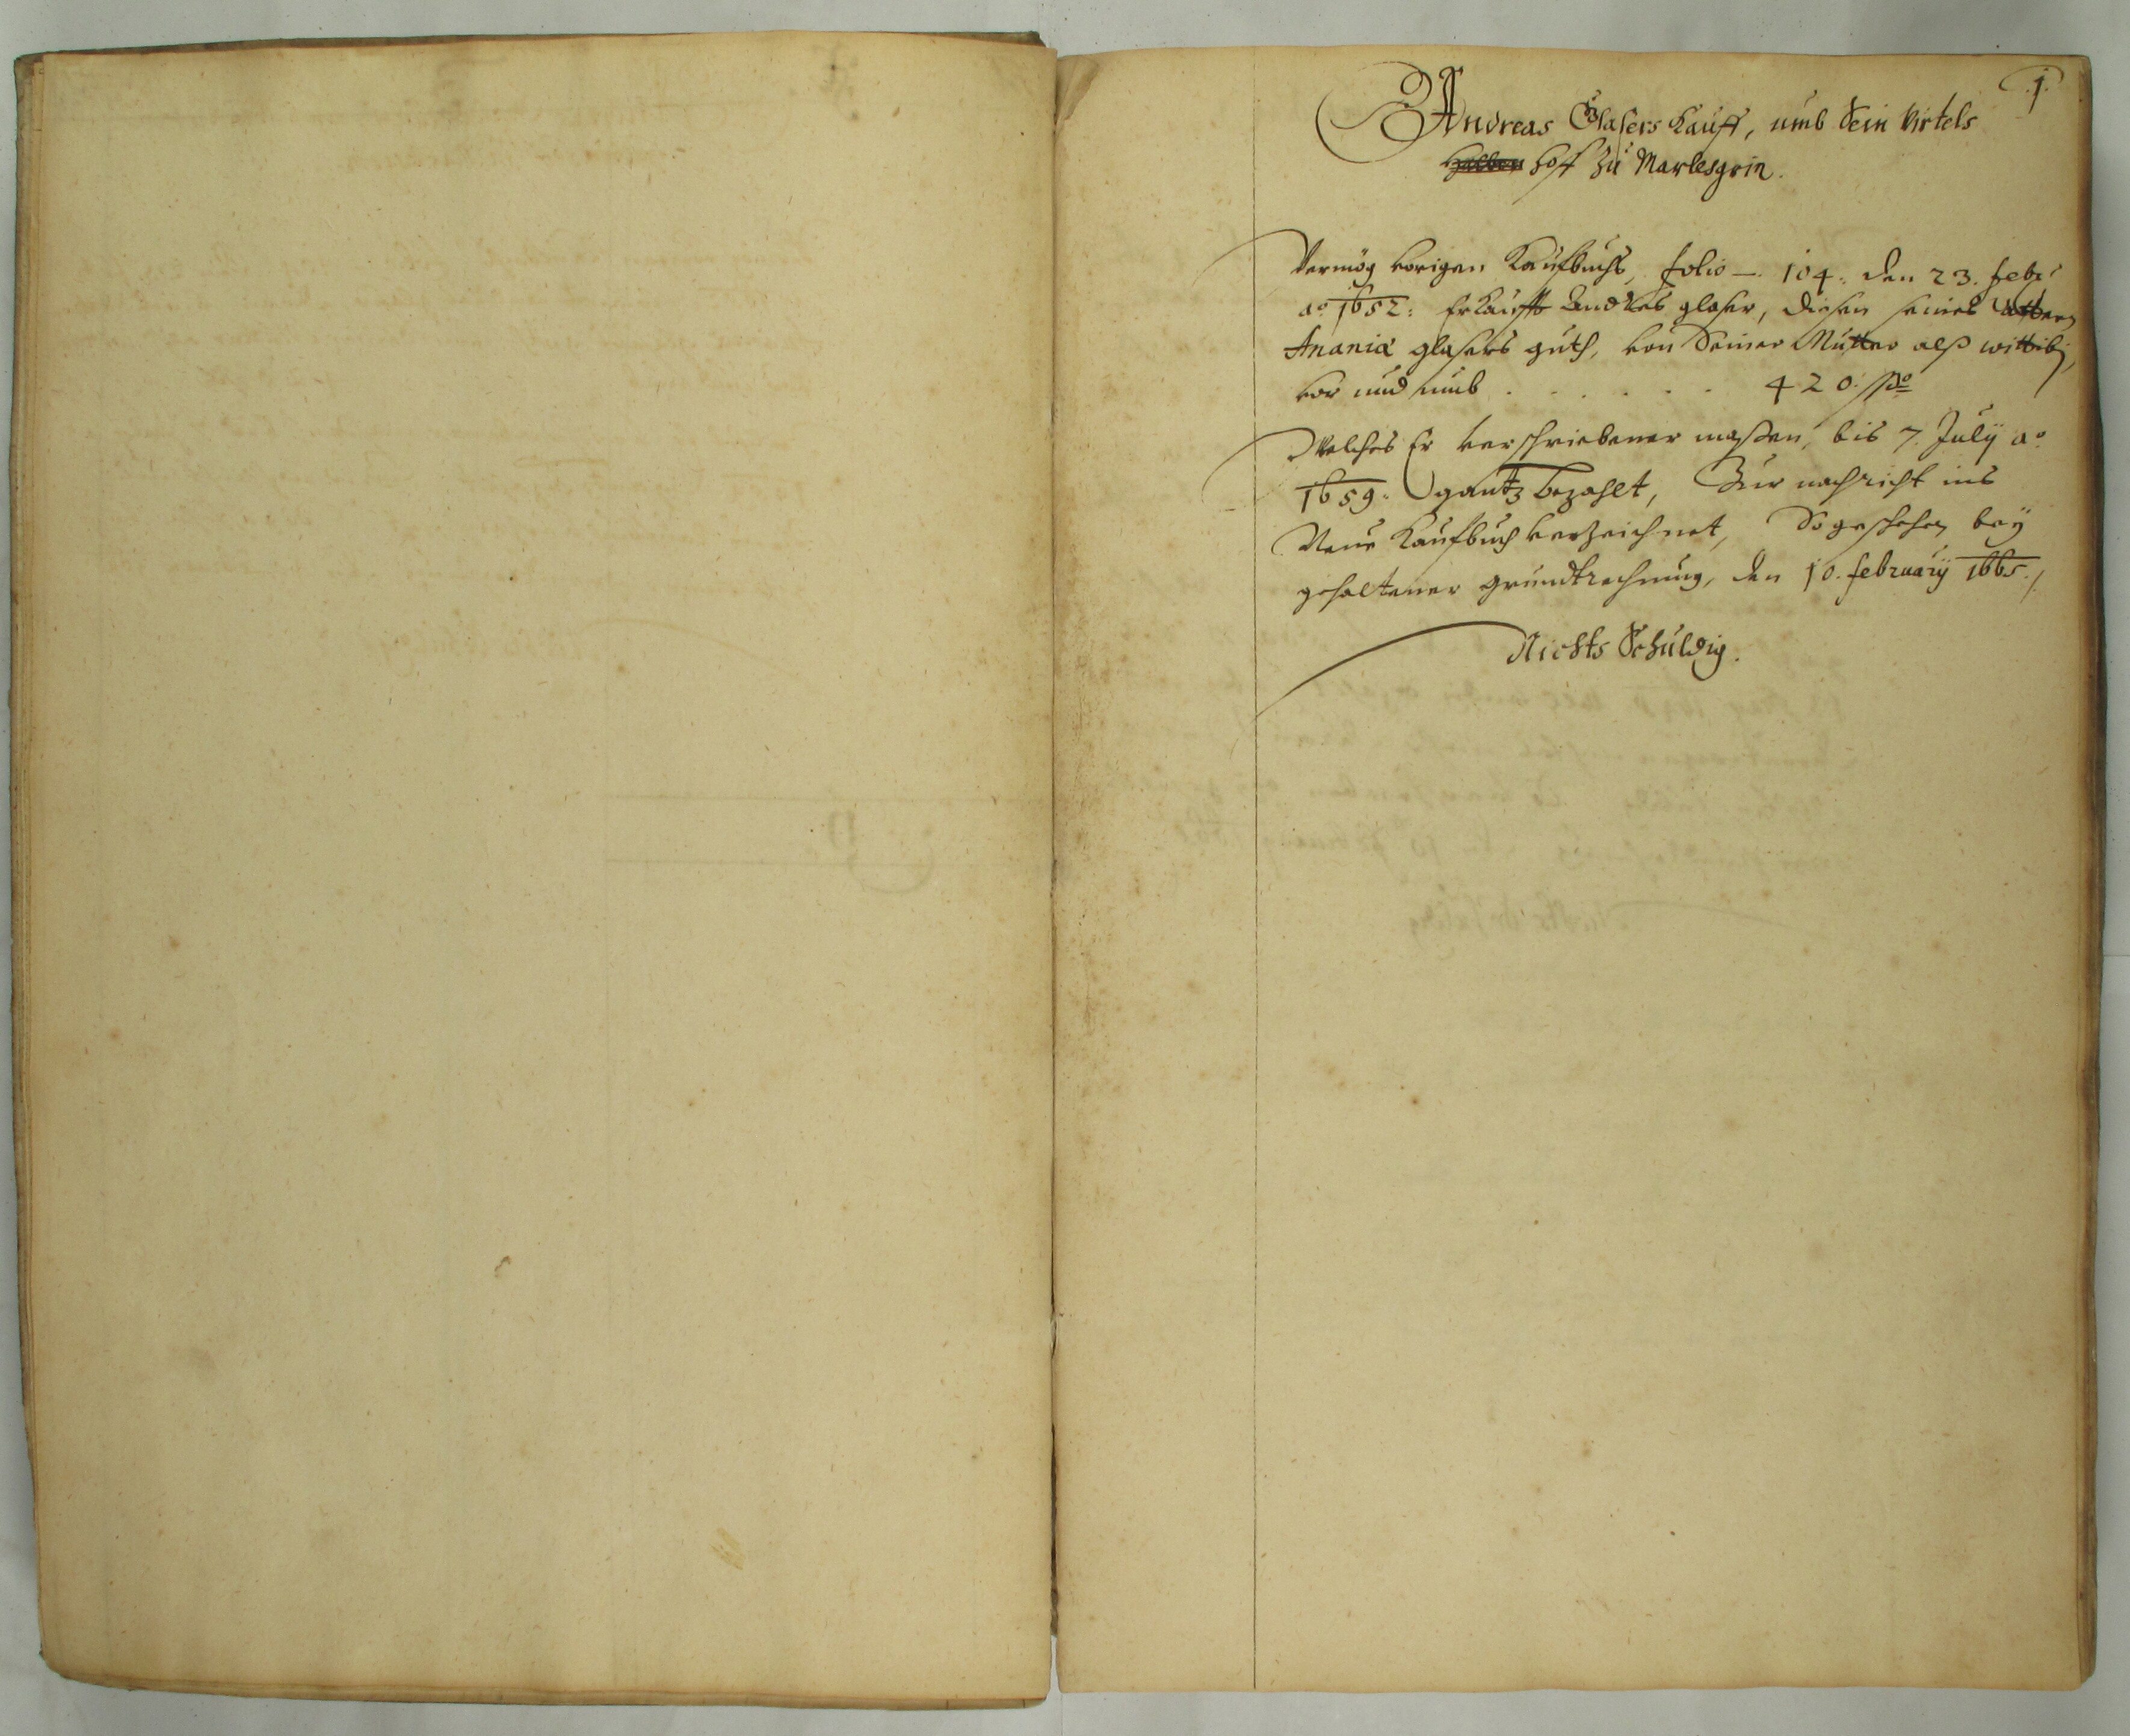 1.
Andreas Glasers Kauff, umb Sein Virtels
halben Hoff Zu Marlesgrin.
Vermög vorigen Kaufbuchs, folio — 104. den 23. febr:
ao 1652: Erkaufft Andres glaser, diesen seines Vattern
Anania glasers guth, von Seiner Mutter alß wittib,
vor und umb . . . . . . 420 ßo
Welches Er verschriebener maßen, bis 7. July ao
1659. gantz bezahlt, Zur nachricht ins
Neue Kaufbuch verzeichnet, So geschehen bey
gehaltener grundtrechnung, den 10. february 1665./.
Nichts Schuldig.